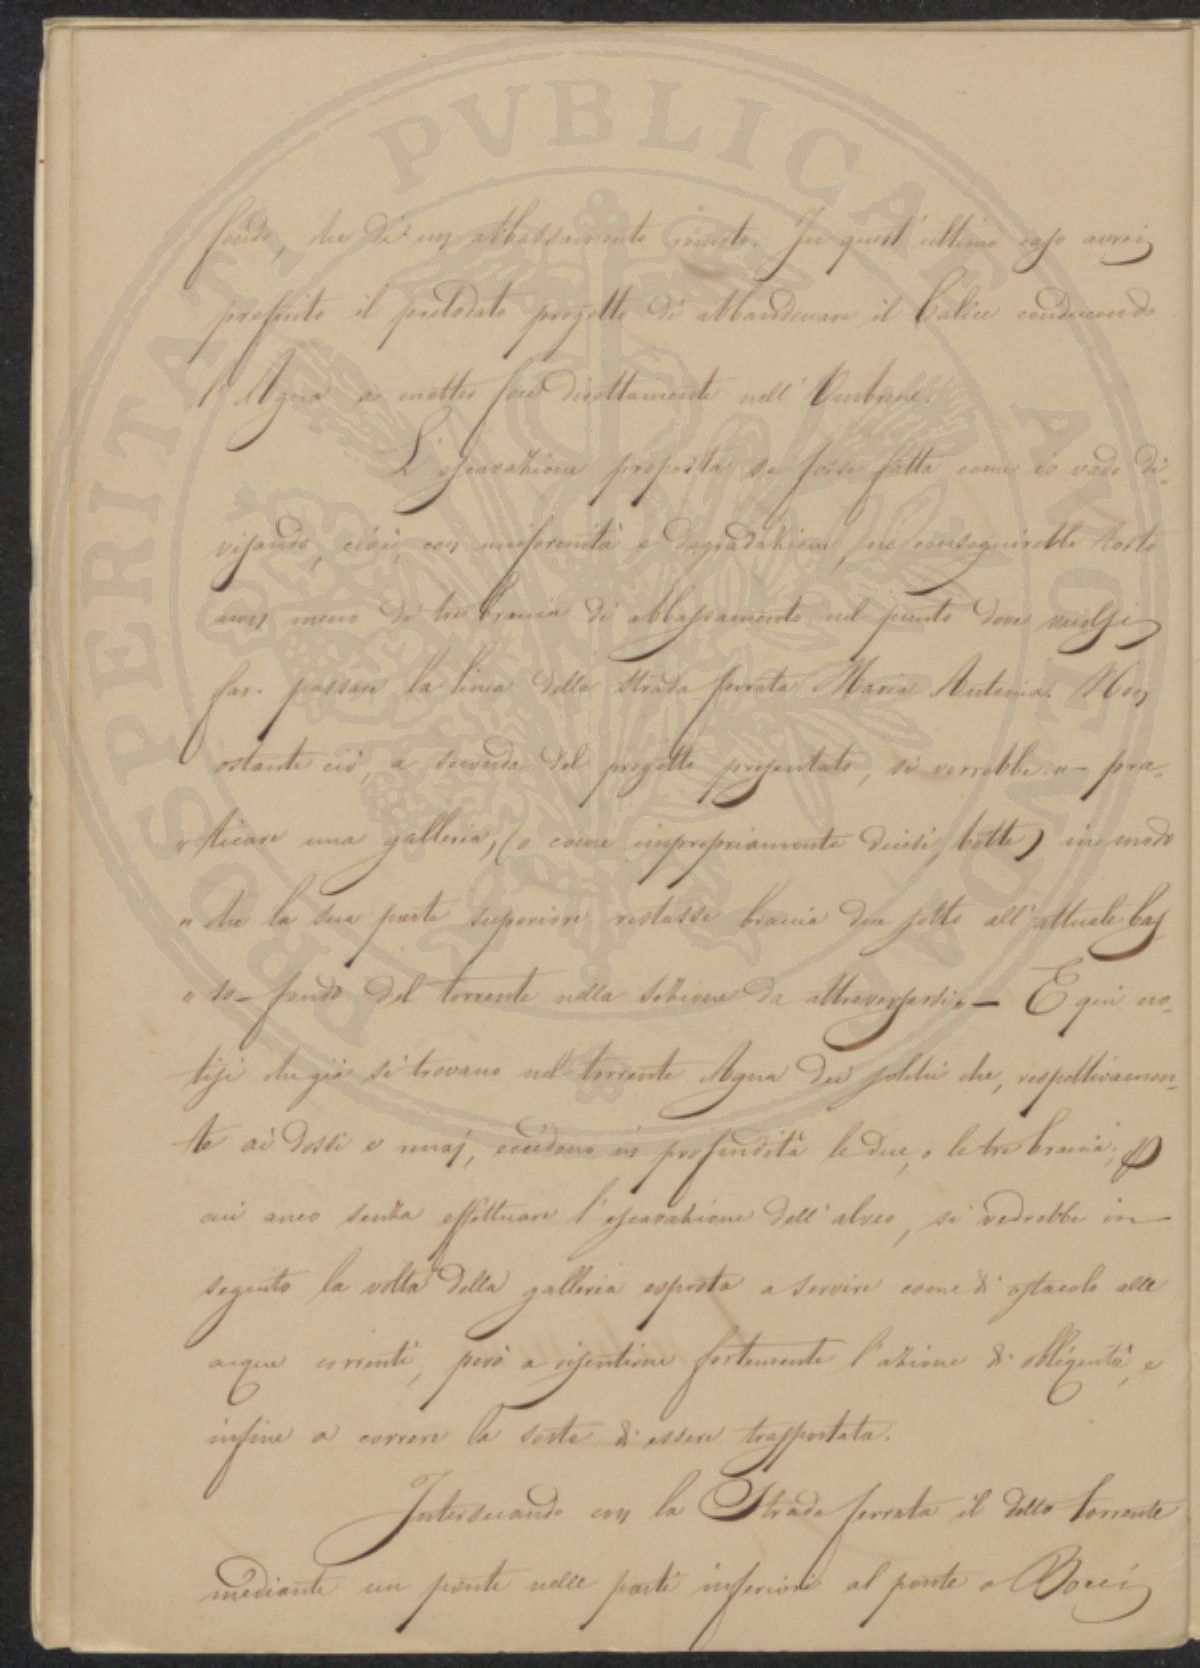 PROSPERITATI PVBLICAE AVGENDAE
fondo, che di un abbassamento rovinoso. In quest'ultimo caso avrei
preferito il prelodato progetto di abbandonare il Calice conducendo
l'Agna a metter foce direttamente nell'Ombrone.
L'escavazione proposta se fosse fatta come io vado di-
visando, cioè, con uniformità e degradazione, ne conseguirebbe tosto
non meno di tre braccia di abbassamento nel punto dove vuolsi
far passare la linea della strada ferrata Maria Antonia. Non
ostante ciò, a seconda del progetto presentato, si vorrebbe "— pra-
" ticare una galleria, (o come impropriamente dicesi, botte) in modo
" che la sua parte superiore restasse braccia due sotto all'attuale bas
" so-fondo del torrente nella sezione da attraversarsi" — E qui no-
tisi che già si trovano nel torrente Agna dei solchi che, respettivamen-
te ai dossi e renaj, eccedono in profondità le due, o le tre braccia;
cui anco senza effettuare l'escavazione dell'alveo, si vedrebbe in
seguito la volta della galleria esposta a servire come di ostacolo alle
acque correnti, però a risentirne fortemente l'azione di obliquità, e
infine a correre la sorte di essere trasportata.
Intersecando con la Strada ferrata il detto torrente
mediante un ponte nelle parti inferiori al ponte a Bocci